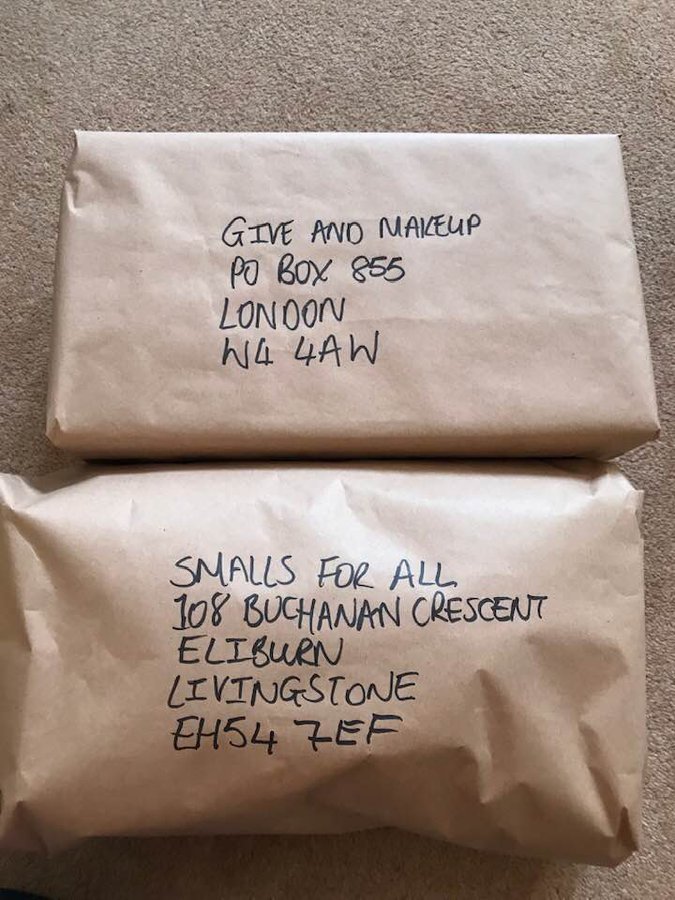 GIVE AND MAKEUP
PO BOX 855
LONDON
W4 4AW
SMALLS FOR ALL
108 BUCHANAN CRESCENT
ELIBURN
LIVINGSTONE
EH54 7EF